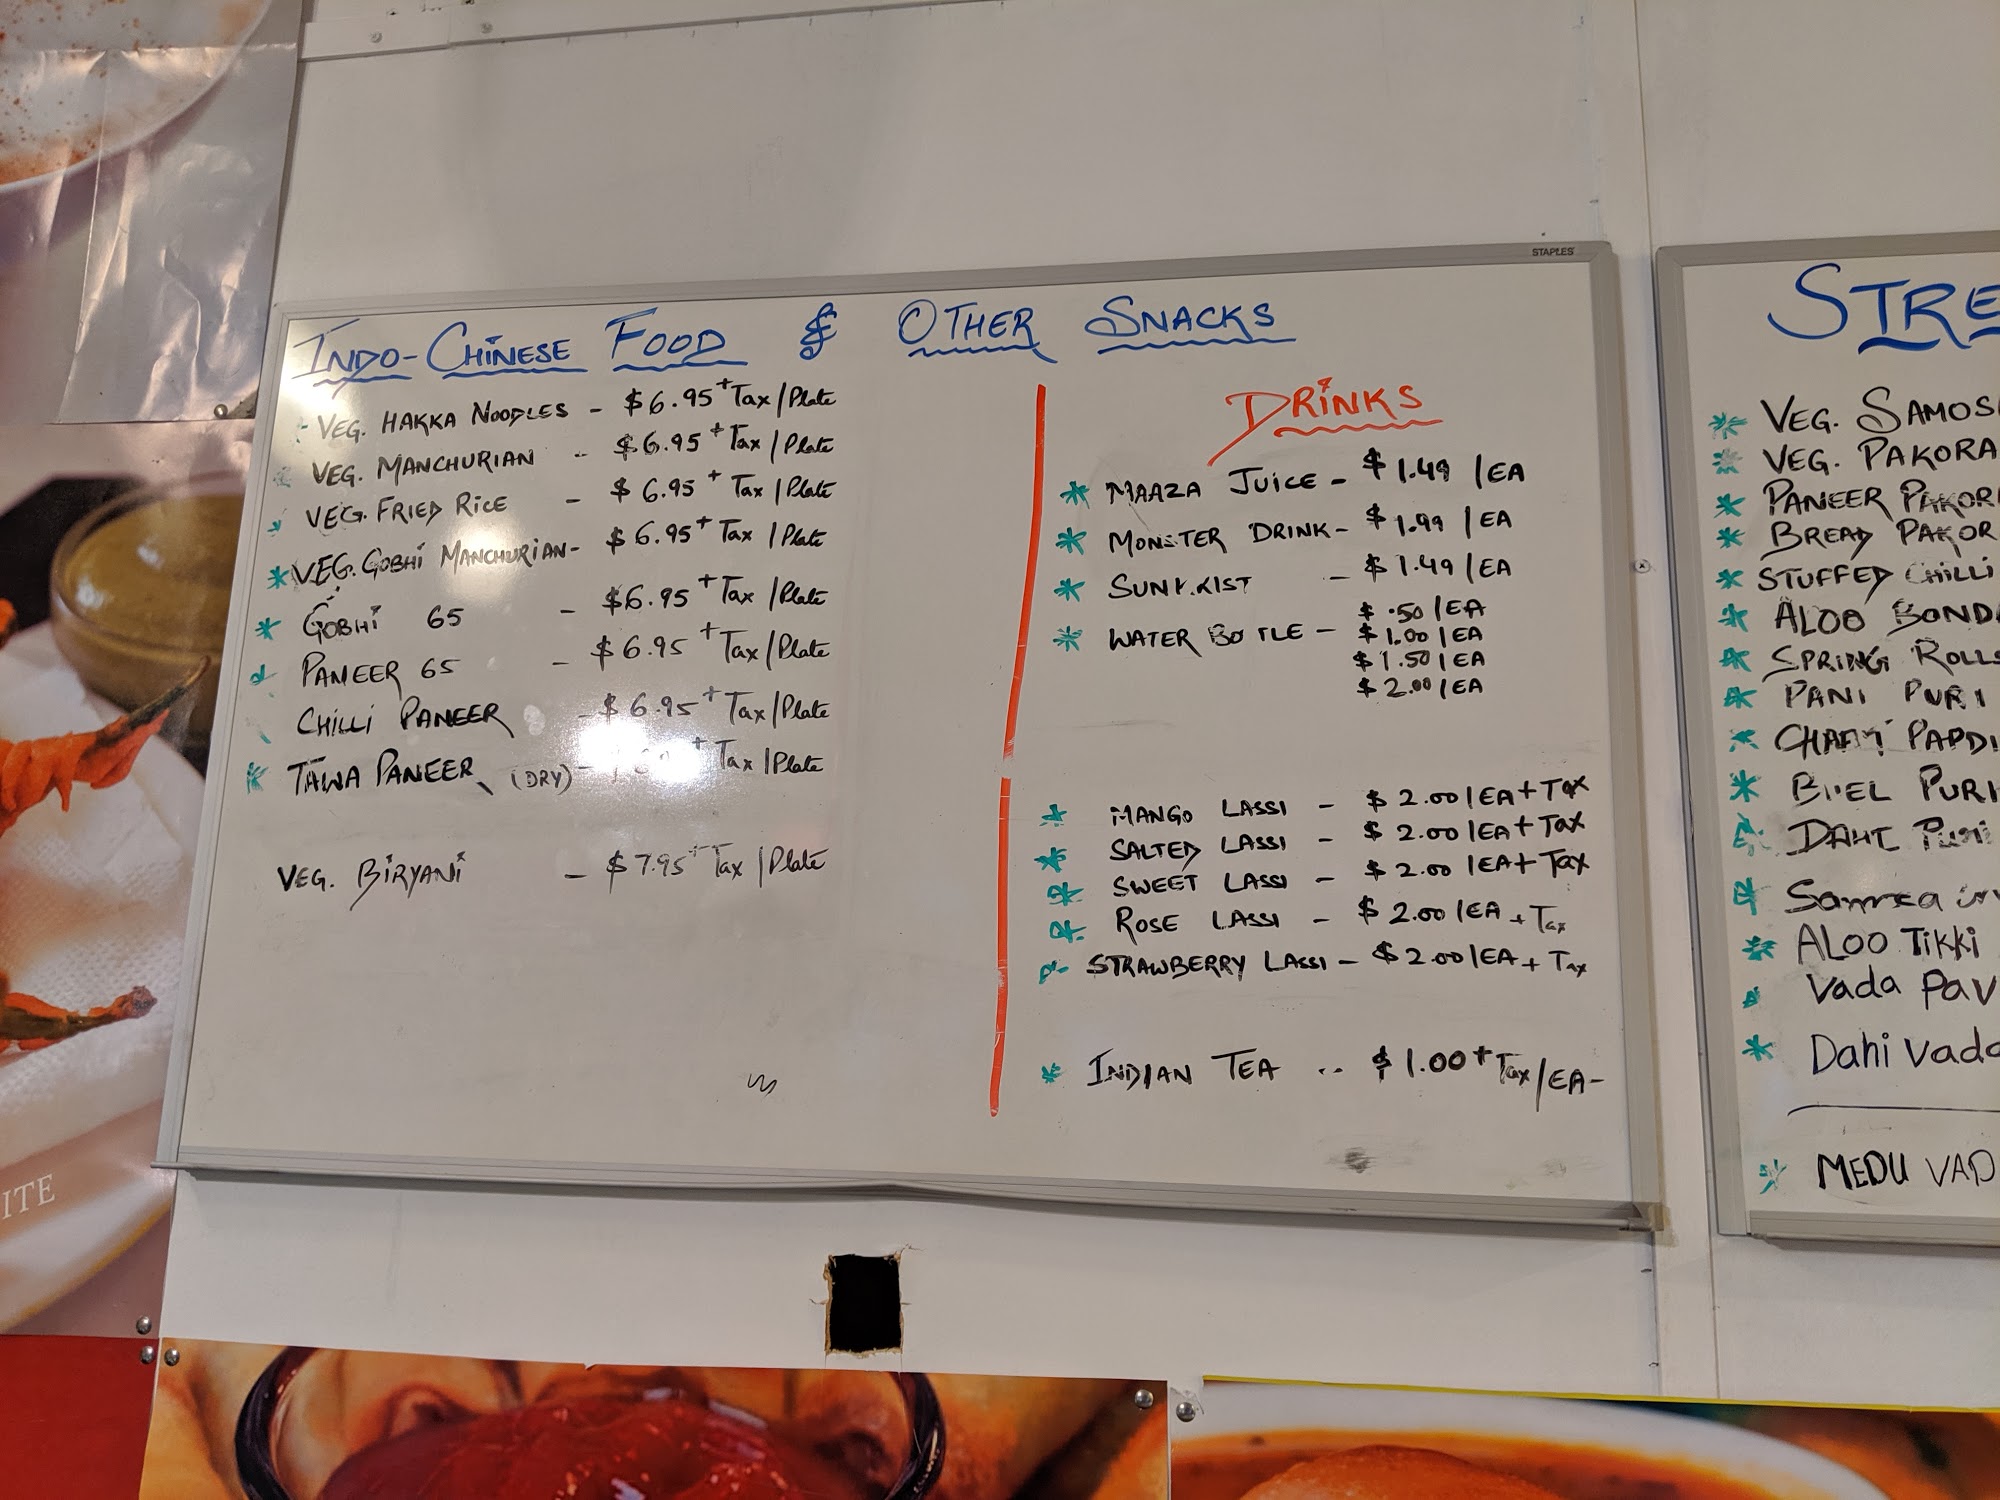 STAPLES
INDO-CHINESE FOOD & OTHER SNACKS
VEG. HAKKA NOODLES - $6.95 + Tax/Plate
VEG. MANCHURIAN - $6.95 + Tax/Plate
VEG. FRIED RICE - $6.95 + Tax/Plate
* VEG. GOBHI MANCHURIAN - $6.95 + Tax/Plate
* GOBHI 65 - $6.95 + Tax/Plate
PANEER 65 - $6.95 + Tax/Plate
CHILLI PANEER - $6.95 + Tax/Plate
* TAWA PANEER (DRY) - + Tax/Plate
VEG. BIRYANI - $7.95 + Tax/Plate
DRINKS
* MAAZA JUICE - $1.49 /EA
* MONSTER DRINK - $1.99 /EA
* SUNKIST - $1.49 /EA
* WATER BOTTLE - $.50/EA
$1.00/EA
$1.50/EA
$2.00/EA
* MANGO LASSI - $2.00/EA + Tax
* SALTED LASSI - $2.00/EA + Tax
* SWEET LASSI - $2.00/EA + Tax
* ROSE LASSI - $2.00/EA + Tax
* STRAWBERRY LASSI - $2.00/EA + Tax
* INDIAN TEA - $1.00 + Tax/EA-
STRE
* VEG. SAMOS
* VEG. PAKORA
* PANEER PAKOR
* BREAD PAKOR
* STUFFED CHILLI
* ALOO BOND
* SPRING ROLLS
* PANI PURI
* PAPDI
* PURI
* DAHI Puri
* ALOO TIKKI
Vada Pav
* Dahi Vada
* MEDU VAD
ITE